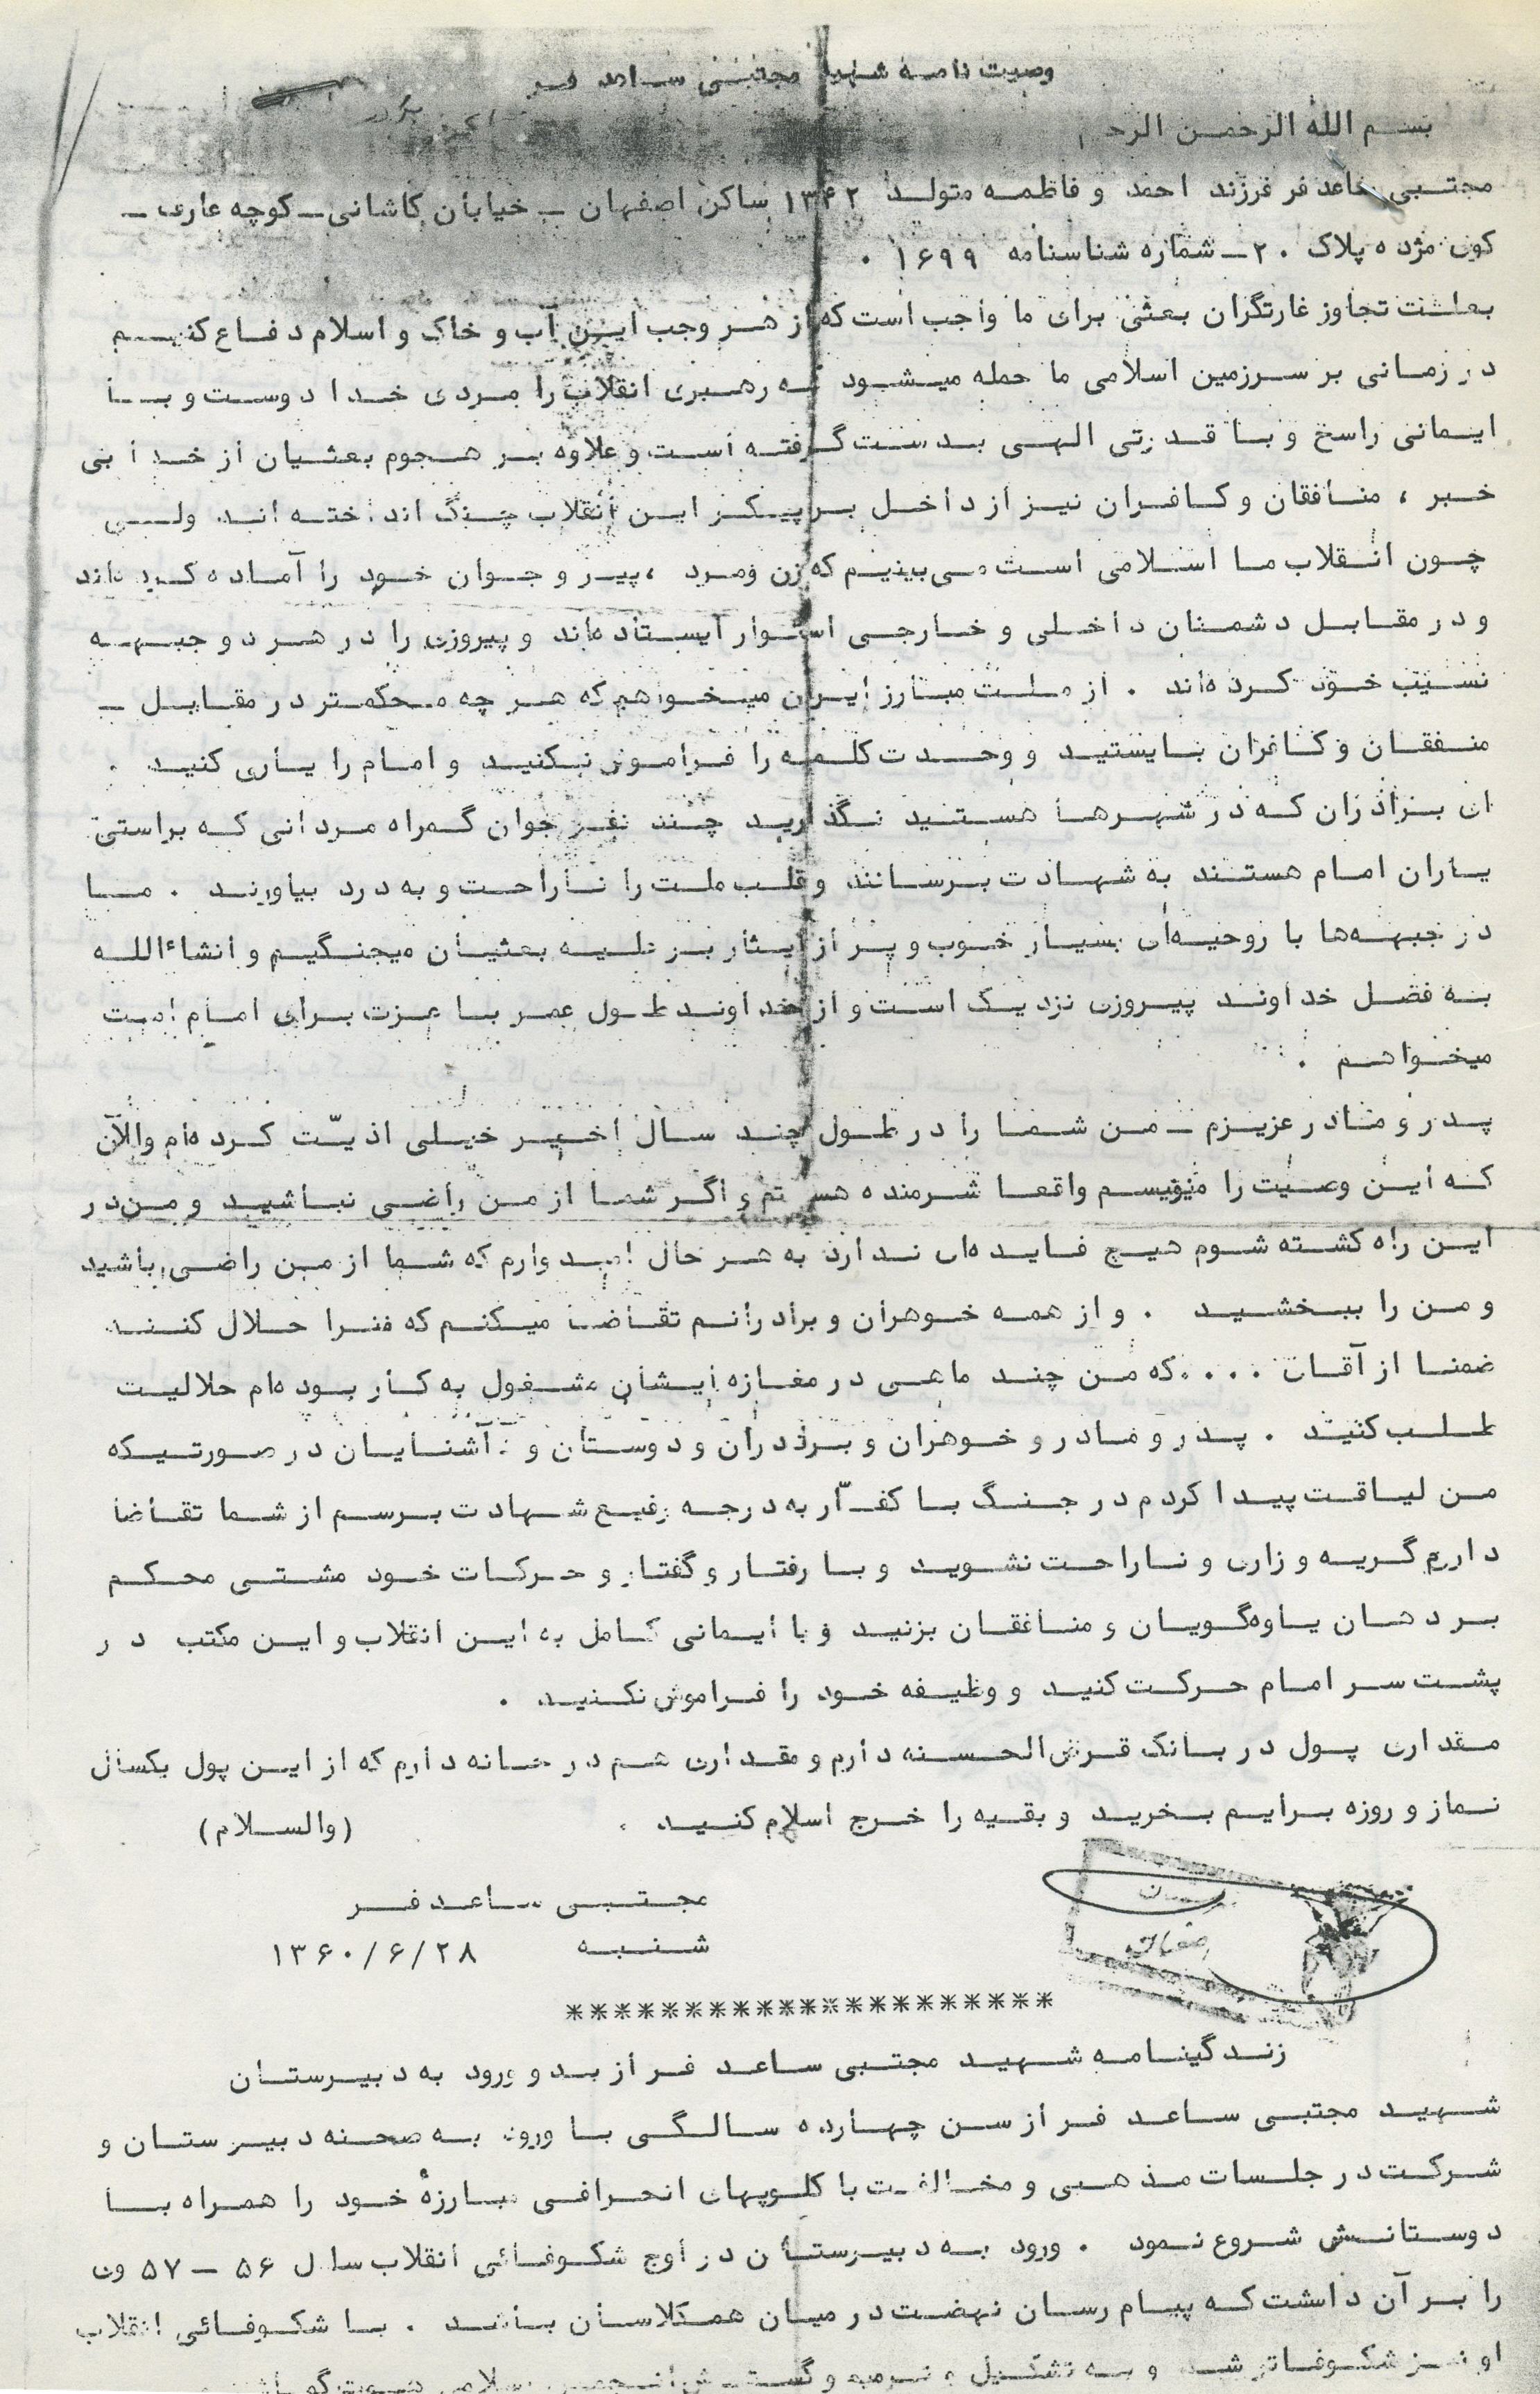 وصیت نامه شهید مجتبی ساعد فر
بسم الله الرحمن الرحیم
مجتبی ساعد فر فرزند احمد و فاطمه متولد ۱۳۴۲ ساکن اصفهان ـ خیابان کاشانی ـ کوچه عاری ـ
کوی مژده پلاک ۲۰ ـ شماره شناسنامه ۱۶۹۹ .
بعلت تجاوز غارتگران بعثی برای ما واجب است که از هر وجب این آب و خاک و اسلام دفاع کنیم
در زمانی بر سرزمین اسلامی ما حمله میشود که رهبری انقلاب را مردی خدا دوست و با
ایمانی راسخ و با قدرتی الهی بدست گرفته است و علاوه بر هجوم بعثیان از خدا بی
خبر ، منافقان و کافران نیز از داخل بر پیکر این انقلاب چنگ انداخته اند ولی
چون انقلاب ما اسلامی است می‌بینیم که زن ومرد ، پیر و جوان خود را آماده کرده‌اند
و در مقابل دشمنان داخلی و خارجی استوار ایستاده‌اند و پیروزی را در هر دو جبهه
نسیب خود کرده‌اند . از ملت مبارز ایران میخواهم که هر چه محکمتر در مقابل ـ
منفقان و کافران بایستید و وحدت کلمه را فراموش نکنید و امام را یاری کنید .
ای برادران که در شهرها هستید نگذارید چند نفر جوان گمراه مردانی که براستی
یاران امام هستند به شهادت برسانند و قلب ملت را ناراحت و به درد بیاورند . ما
در جبهه‌ها با روحیه‌ای بسیار خوب و پر از ایثار بر علیه بعثیان میجنگیم و انشاءالله
به فضل خداوند پیروزی نزدیک است و از خداوند طول عمر با عزت برای امام امت
میخواهم .
پدر و مادر عزیزم ـ من شما را در طول چند سال اخیر خیلی اذیّت کرده‌ام والآن
که این وصیت را مینویسم واقعا شرمنده هستم و اگر شما از من راضی نباشید و من‌در
این راه کشته شوم هیچ فایده‌ای ندارد به هر حال امیدوارم که شما از من راضی باشید
و من را ببخشید . و از همه خوهران و برادرانم تقاضا میکنم که مرا حلال کنند
ضمنا از آقای .... که من چند ماهی در مغازه ایشان مشغول به کار بوده‌ام حلالیت
طلب کنید . پدر و مادر و خوهران و برادران و دوستان و آشنایان در صورتیکه
من لیاقت پیدا کردم در جنگ با کفّار به درجه رفیع شهادت برسم از شما تقاضا
دارم گریه و زاری و ناراحت نشوید و با رفتار و گفتار و حرکات خود مشتی محکم
بر دهان یاوه‌گویان و منافقان بزنید و با ایمانی کامل به این انقلاب و این مکتب در
پشت سر امام حرکت کنید و وظیفه خود را فراموش نکنید .
مقداری پول در بانک قرض‌الحسنه دارم و مقداری هم در خانه دارم که از این پول یکسال
نماز و روزه برایم بخرید و بقیه را خرج اسلام کنید . (والسلام)
مجتبی ساعد فر
شنبه ۱۳۶۰/۶/۲۸
*********************
زندگینامه شهید مجتبی ساعد فر از بدو ورود به دبیرستان
شهید مجتبی ساعد فر از سن چهارده سالگی با ورود به صحنه دبیرستان و
شرکت در جلسات مذهبی و مخالفت با کلوپهای انحرافی مبارزهٔ خود را همراه با
دوستانش شروع نمود . ورود به دبیرستان در اوج شکوفائی انقلاب سال ۵۶ ـ ۵۷ وی
را بر آن داشت که پیام رسان نهضت در میان همکلاسان باشد . با شکوفائی انقلاب
او نیز شکوفاتر شد و به تشکیل و